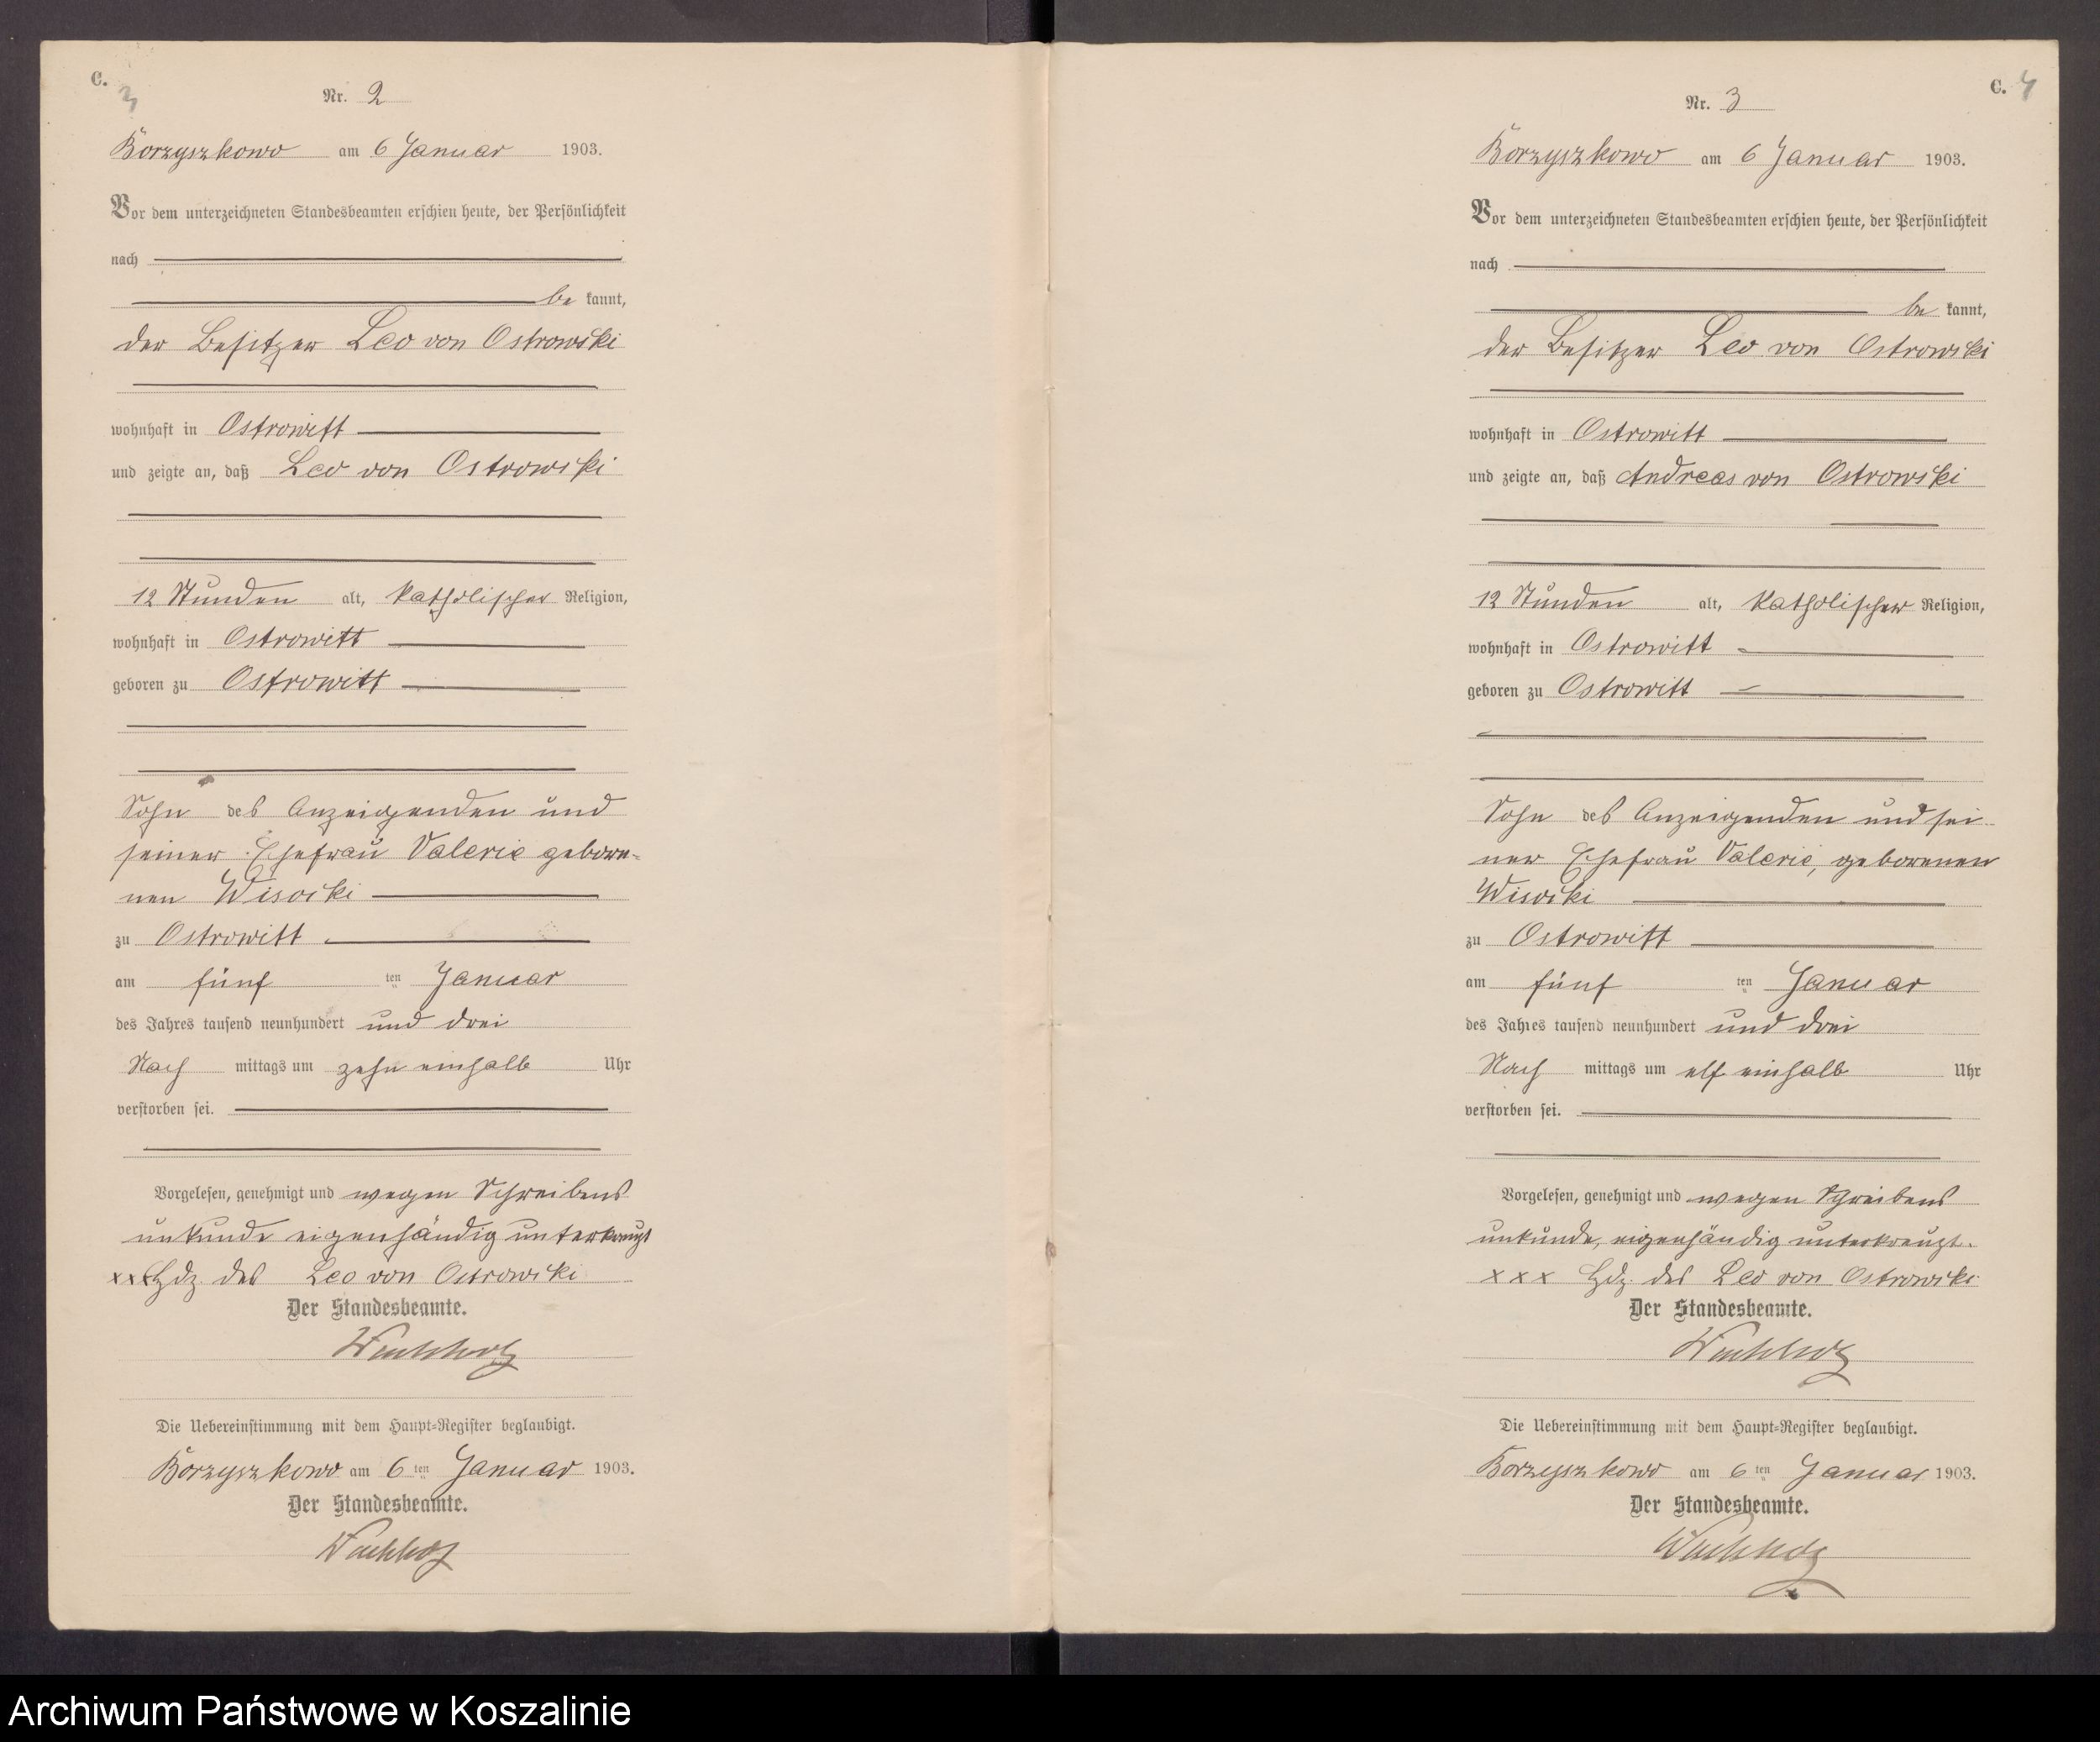 C.
3
Nr. 2
Borzyszkowo am 6 Januar 1903.
Vor dem unterzeichneten Standesbeamten erschien heute, der Persönlichkeit
nach
be kannt,
der Besitzer Leo von Ostrowski
wohnhaft in Ostrowitt
und zeigte an, daß Leo von Ostrowski
12 Stunden alt, katholischer Religion,
wohnhaft in Ostrowitt
geboren zu Ostrowitt
Sohn des Anzeigenden und
seiner Ehefrau Valerie gebore-
nen Wisocki
zu Ostrowitt
am fünf ten Januar
des Jahres tausend neunhundert und drei
Nach mittags um zehn einhalb Uhr
verstorben sei.
Vorgelesen, genehmigt und wegen Schreibens
unkunde eigenhändig unterkreuzt
xxx Hdz. des Leo von Ostrowski
Der Standesbeamte.
Wachholz
Die Uebereinstimmung mit dem Haupt-Register beglaubigt.
Borzyszkowo am 6 ten Januar 1903.
Der Standesbeamte.
Wachholz
C. 4
Nr. 3
Borzyszkowo am 6 Januar 1903.
Vor dem unterzeichneten Standesbeamten erschien heute, der Persönlichkeit
nach
be kannt,
der Besitzer Leo von Ostrowski
wohnhaft in Ostrowitt
und zeigte an, daß Andreas von Ostrowski
12 Stunden alt, katholischer Religion,
wohnhaft in Ostrowitt
geboren zu Ostrowitt
Sohn des Anzeigenden und sei
ner Ehefrau Valerie, geborenen
Wisocki
zu Ostrowitt
am fünf ten Januar
des Jahres tausend neunhundert und drei
Nach mittags um elf einhalb Uhr
verstorben sei.
Vorgelesen, genehmigt und wegen Schreibens
unkunde, eigenhändig unterkreuzt.
x x x Hdz. des Leo von Ostrowski
Der Standesbeamte.
Wachholz
Die Uebereinstimmung mit dem Haupt-Register beglaubigt.
Borzyszkowo am 6 ten Januar 1903.
Der Standesbeamte.
Wachholz
Archiwum Państwowe w Koszalinie